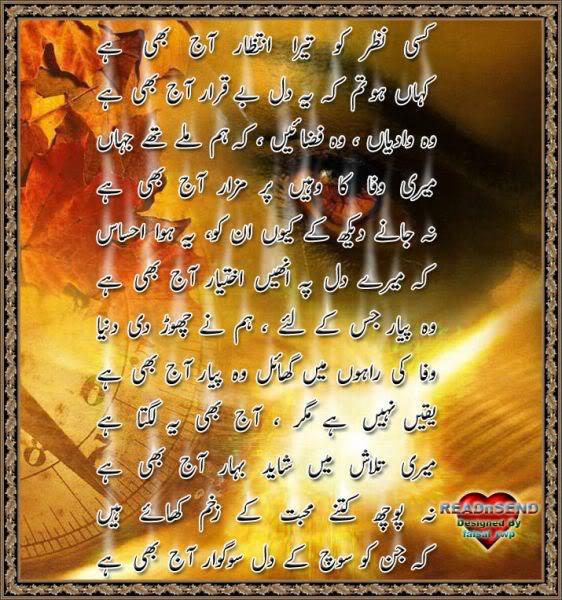 کسی نظر کو تیرا انتظار آج بھی ہے
کہاں ہو تم کہ یہ دل بے قرار آج بھی ہے
وہ وادیاں ، وہ فضائیں ، کہ ہم ملے تھے جہاں
میری وفا کا وہیں پر مزار آج بھی ہے
نہ جانے دیکھ کے کیوں ان کو، یہ ہوا احساس
کہ میرے دل پہ انھیں اختیار آج بھی ہے
وہ پیار جس کے لئے ، ہم نے چھوڑ دی دنیا
وفا کی راہوں میں گھائل وہ پیار آج بھی ہے
یقیں نہیں ہے مگر ، آج بھی یہ لگتا ہے
میری تلاش میں شاید بہار آج بھی ہے
نہ پوچھ کتنے محبت کے زخم کھائے ہیں
کہ جن کو سوچ کے دل سوگوار آج بھی ہے
READnSEND
Designed By
faisal_rwp
8